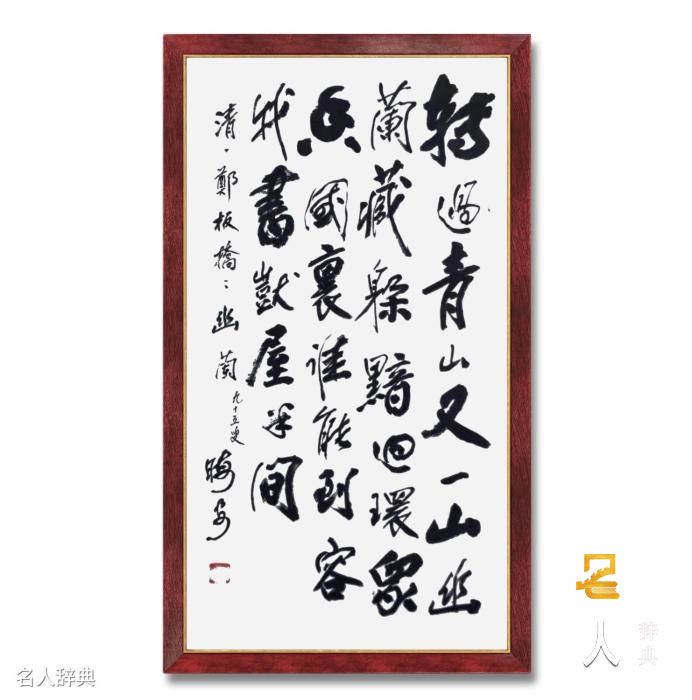 轉過青山又一山幽
蘭藏躲黯迴環眾
香國裏誰能到容
我書獃屋半間
清、鄭板橋：幽蘭 九十五叟
名人辞典
名人辞典